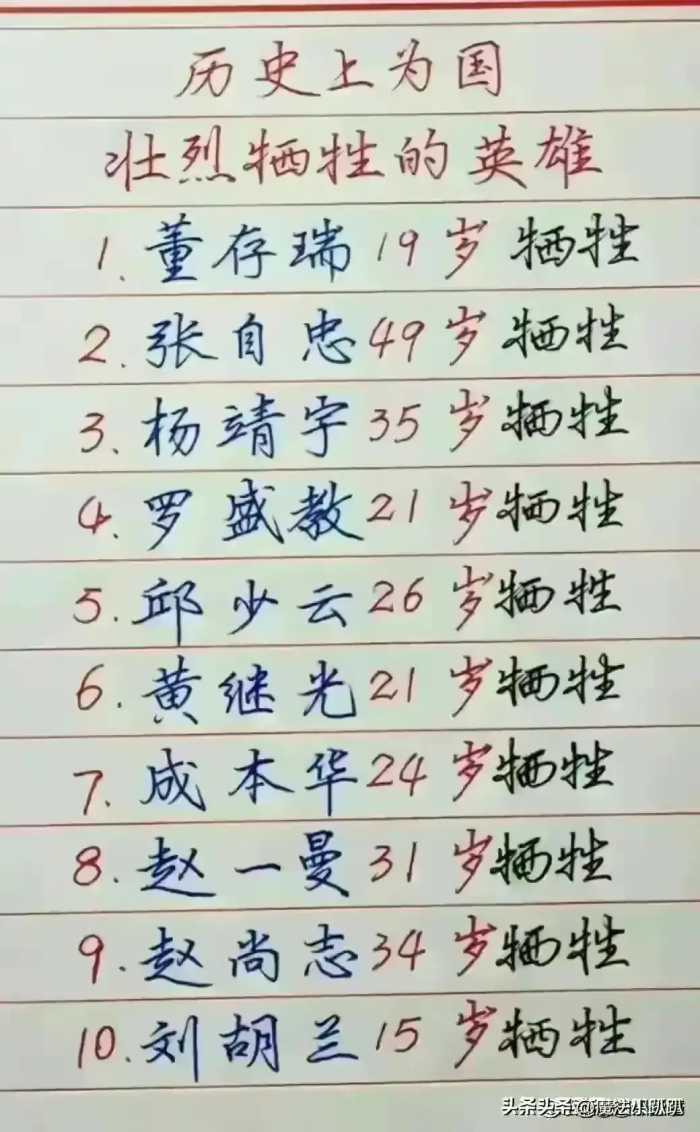 历史上为国
壮烈牺牲的英雄
1.董存瑞19岁牺牲
2.张自忠49岁牺牲
3.杨靖宇35岁牺牲
4.罗盛教21岁牺牲
5.邱少云26岁牺牲
6.黄继光21岁牺牲
7.成本华24岁牺牲
8.赵一曼31岁牺牲
9.赵尚志34岁牺牲
10.刘胡兰15岁牺牲
头条 @魔法小趴趴